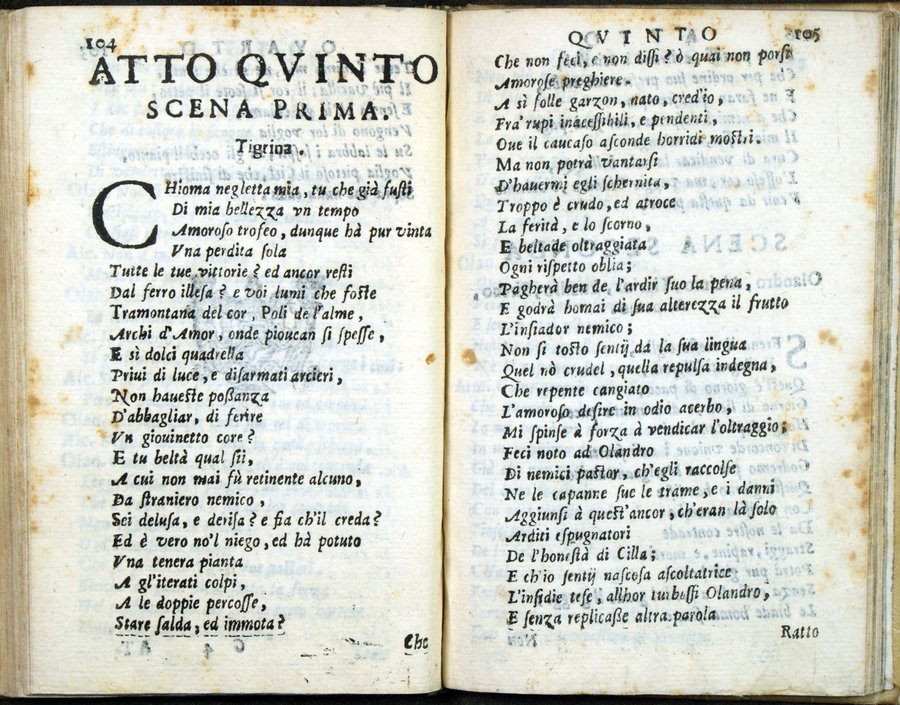 104
ATTO QVINTO
SCENA PRIMA.
Tigrina.
CHioma negletta mia, tu che già fusti
Di mia bellezza vn tempo
Amoroso trofeo, dunque hà pur vinta
Vna perdita sola
Tutte le tue vittorie? ed ancor resti
Dal ferro illesa? e voi lumi che foste
Tramontana del cor, Poli de l'alme,
Archi d'Amor, onde pioucan sì spesse,
E sì dolci quadrella
Priui di luce, e disarmati arcieri,
Non haueste possanza
D'abbagliar, di ferire
Vn giouinetto core?
E tu beltà qual sii,
A cui non mai fù retinente alcuno,
Da straniero nemico,
Sei delusa, e derisa? e fia ch'il creda?
Ed è vero no'l niego, ed hà potuto
Vna tenera pianta
A gl'iterati colpi,
A le doppie percosse,
Stare salda, ed immota?
Che
QVINTO
105
Che non feci, e non dissi? ò quai non porsi
Amorose preghiere.
A sì folle garzon, nato, cred'io,
Frà rupi inacessibili, e pendenti,
Oue il caucaso asconde horridi mostri.
Ma non potrà vantarsi
D'hauermi egli schernita,
Troppo è crudo, ed atroce
La ferità, e lo scorno,
E beltade oltraggiata
Ogni rispetto oblia;
Pagherà ben de l'ardir suo la pena,
E godrà homai di sua alterezza il frutto
L'insiador nemico;
Non si tosto sentij da la sua lingua
Quel nò crudel, quella repulsa indegna,
Che repente cangiato
L'amoroso desire in odio acerbo,
Mi spinse à forza à vendicar l'oltraggio;
Feci noto ad Olandro
Di nemici pastor, ch'egli raccolse
Ne le capanne sue le trame, e i danni
Aggiunsi à quest'ancor, ch'eran là solo
Arditi espugnatori
De l'honestà di Cilla;
E ch'io sentij nascosa ascoltatrice
L'insidie tese, allhor turbossi Olandro,
E senza replicasse altra parola
Ratto